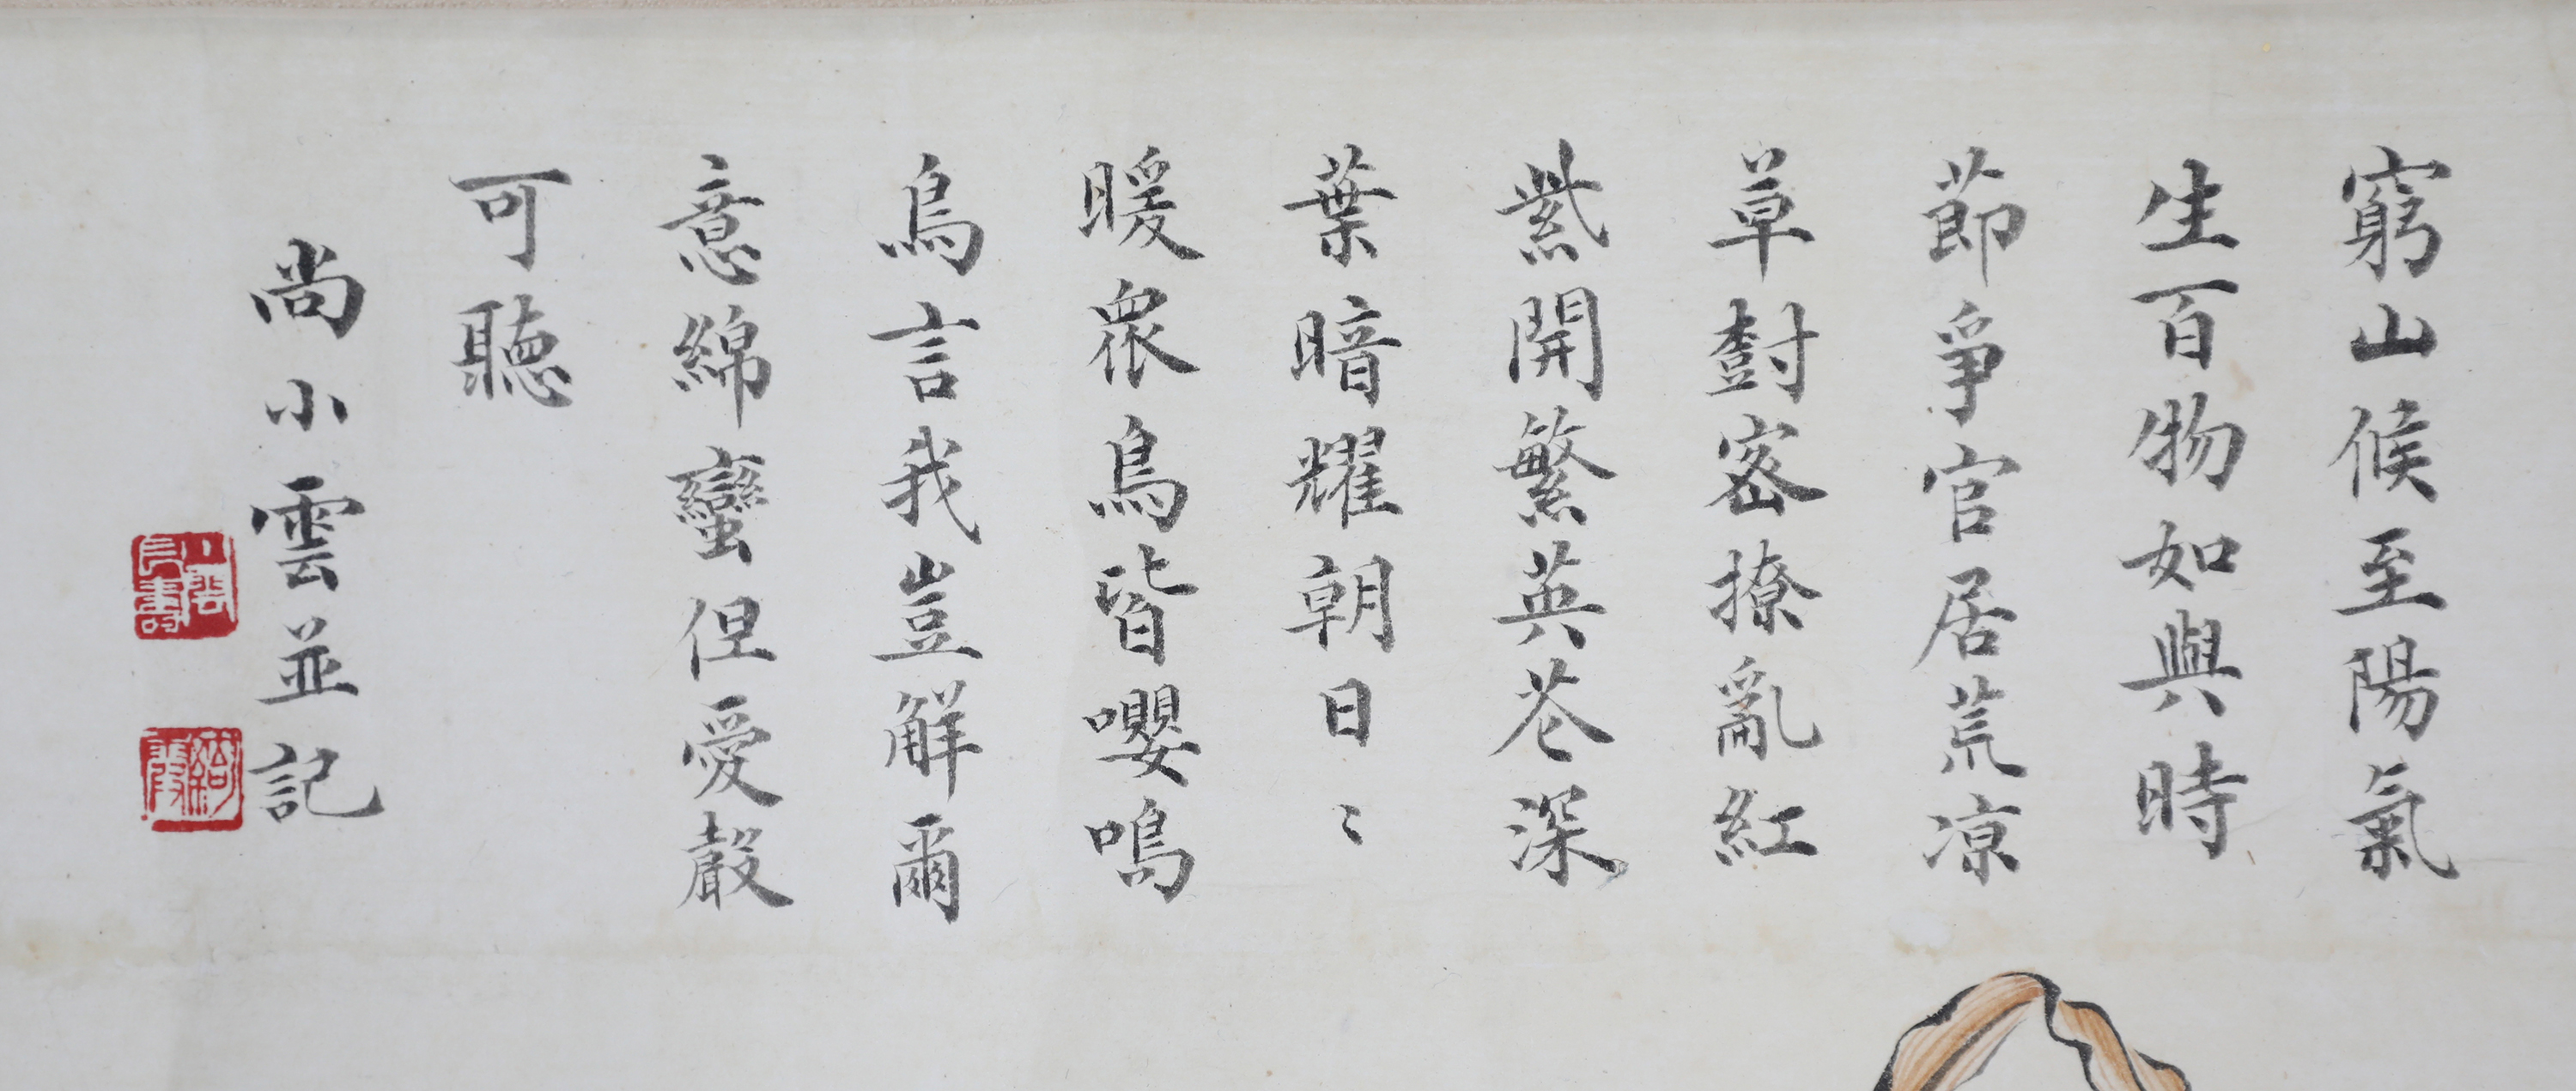 窮山候至陽氣
生百物如與時
節爭官居荒凉
草對密撩亂紅
紫開繁英苍深
葉暗耀朝日〻
暖衆鳥皆嚶鳴
鳥言我豈解爾
意綿蠻但愛聲
可聽
尚小雲並記